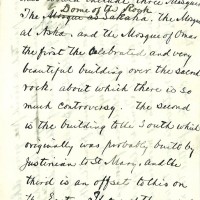 include three Mosques
Dome of the Rock
The Mosque as Sakaha, the Mosque
al Aska, and the Mosque of Omar
the first the Celebrated and very
beautiful building over the sacred
rock, about which there is so
much controversy. The second
is the building to the South which
originally was probably built by
Justinian to St Mary, and the
third is an offset to this on
the